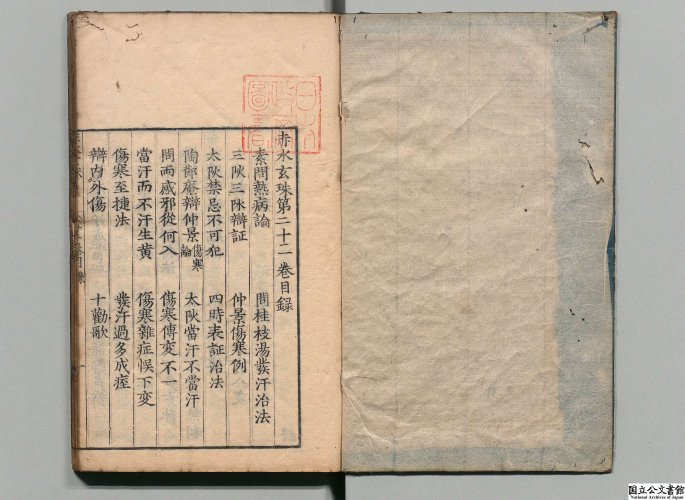 赤水玄珠第二十二卷目録
素問熱病論　問桂枝湯發汗治法
三阦三陎辯証　仲景傷寒例
太阦禁忌不可犯　四時表証治法
陶節菴辯仲景傷寒論　太阦當汗不當汗
問而感邪從何入　傷寒傳変不一
當汗而不汗生黄　傷寒雜症悮下変
傷寒至捷法　發汗過多成痓
辯内外傷　十勸歌
日本
政府
圖書
国立公文書館
National Archives of Japan